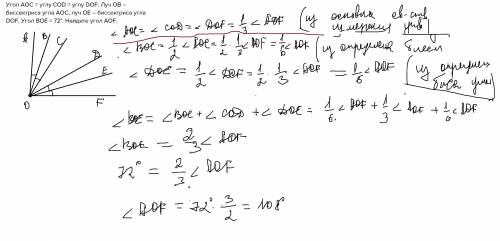 Угол AOC = углу COD = углу DOF. Луч OB –
биссектриса угла AOC, луч OE – биссектриса угла
DOF. Угол BOE = 72°. Найдите угол AOF.
A B C D E F O
∠AOC = ∠COD = ∠DOF = 1/3 ∠AOF (из основных св-в
измерения углов)
∠BOC = 1/2 ∠AOC = 1/2 · 1/3 ∠AOF = 1/6 ∠AOF (из определения бисс
∠DOE = 1/2 ∠DOF = 1/2 · 1/3 ∠AOF = 1/6 ∠AOF (из определен
∠BOE = ∠BOC + ∠COD + ∠DOE = 1/6 ∠AOF + 1/3 ∠AOF + 1/6 ∠AOF
∠BOE = 2/3 ∠AOF
72° = 2/3 ∠AOF
∠AOF = 72° · 3/2 = 108°